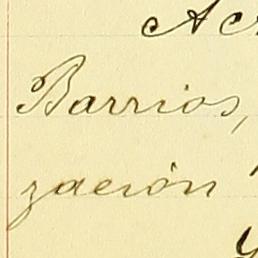 Ac
Barrios,
zación
y